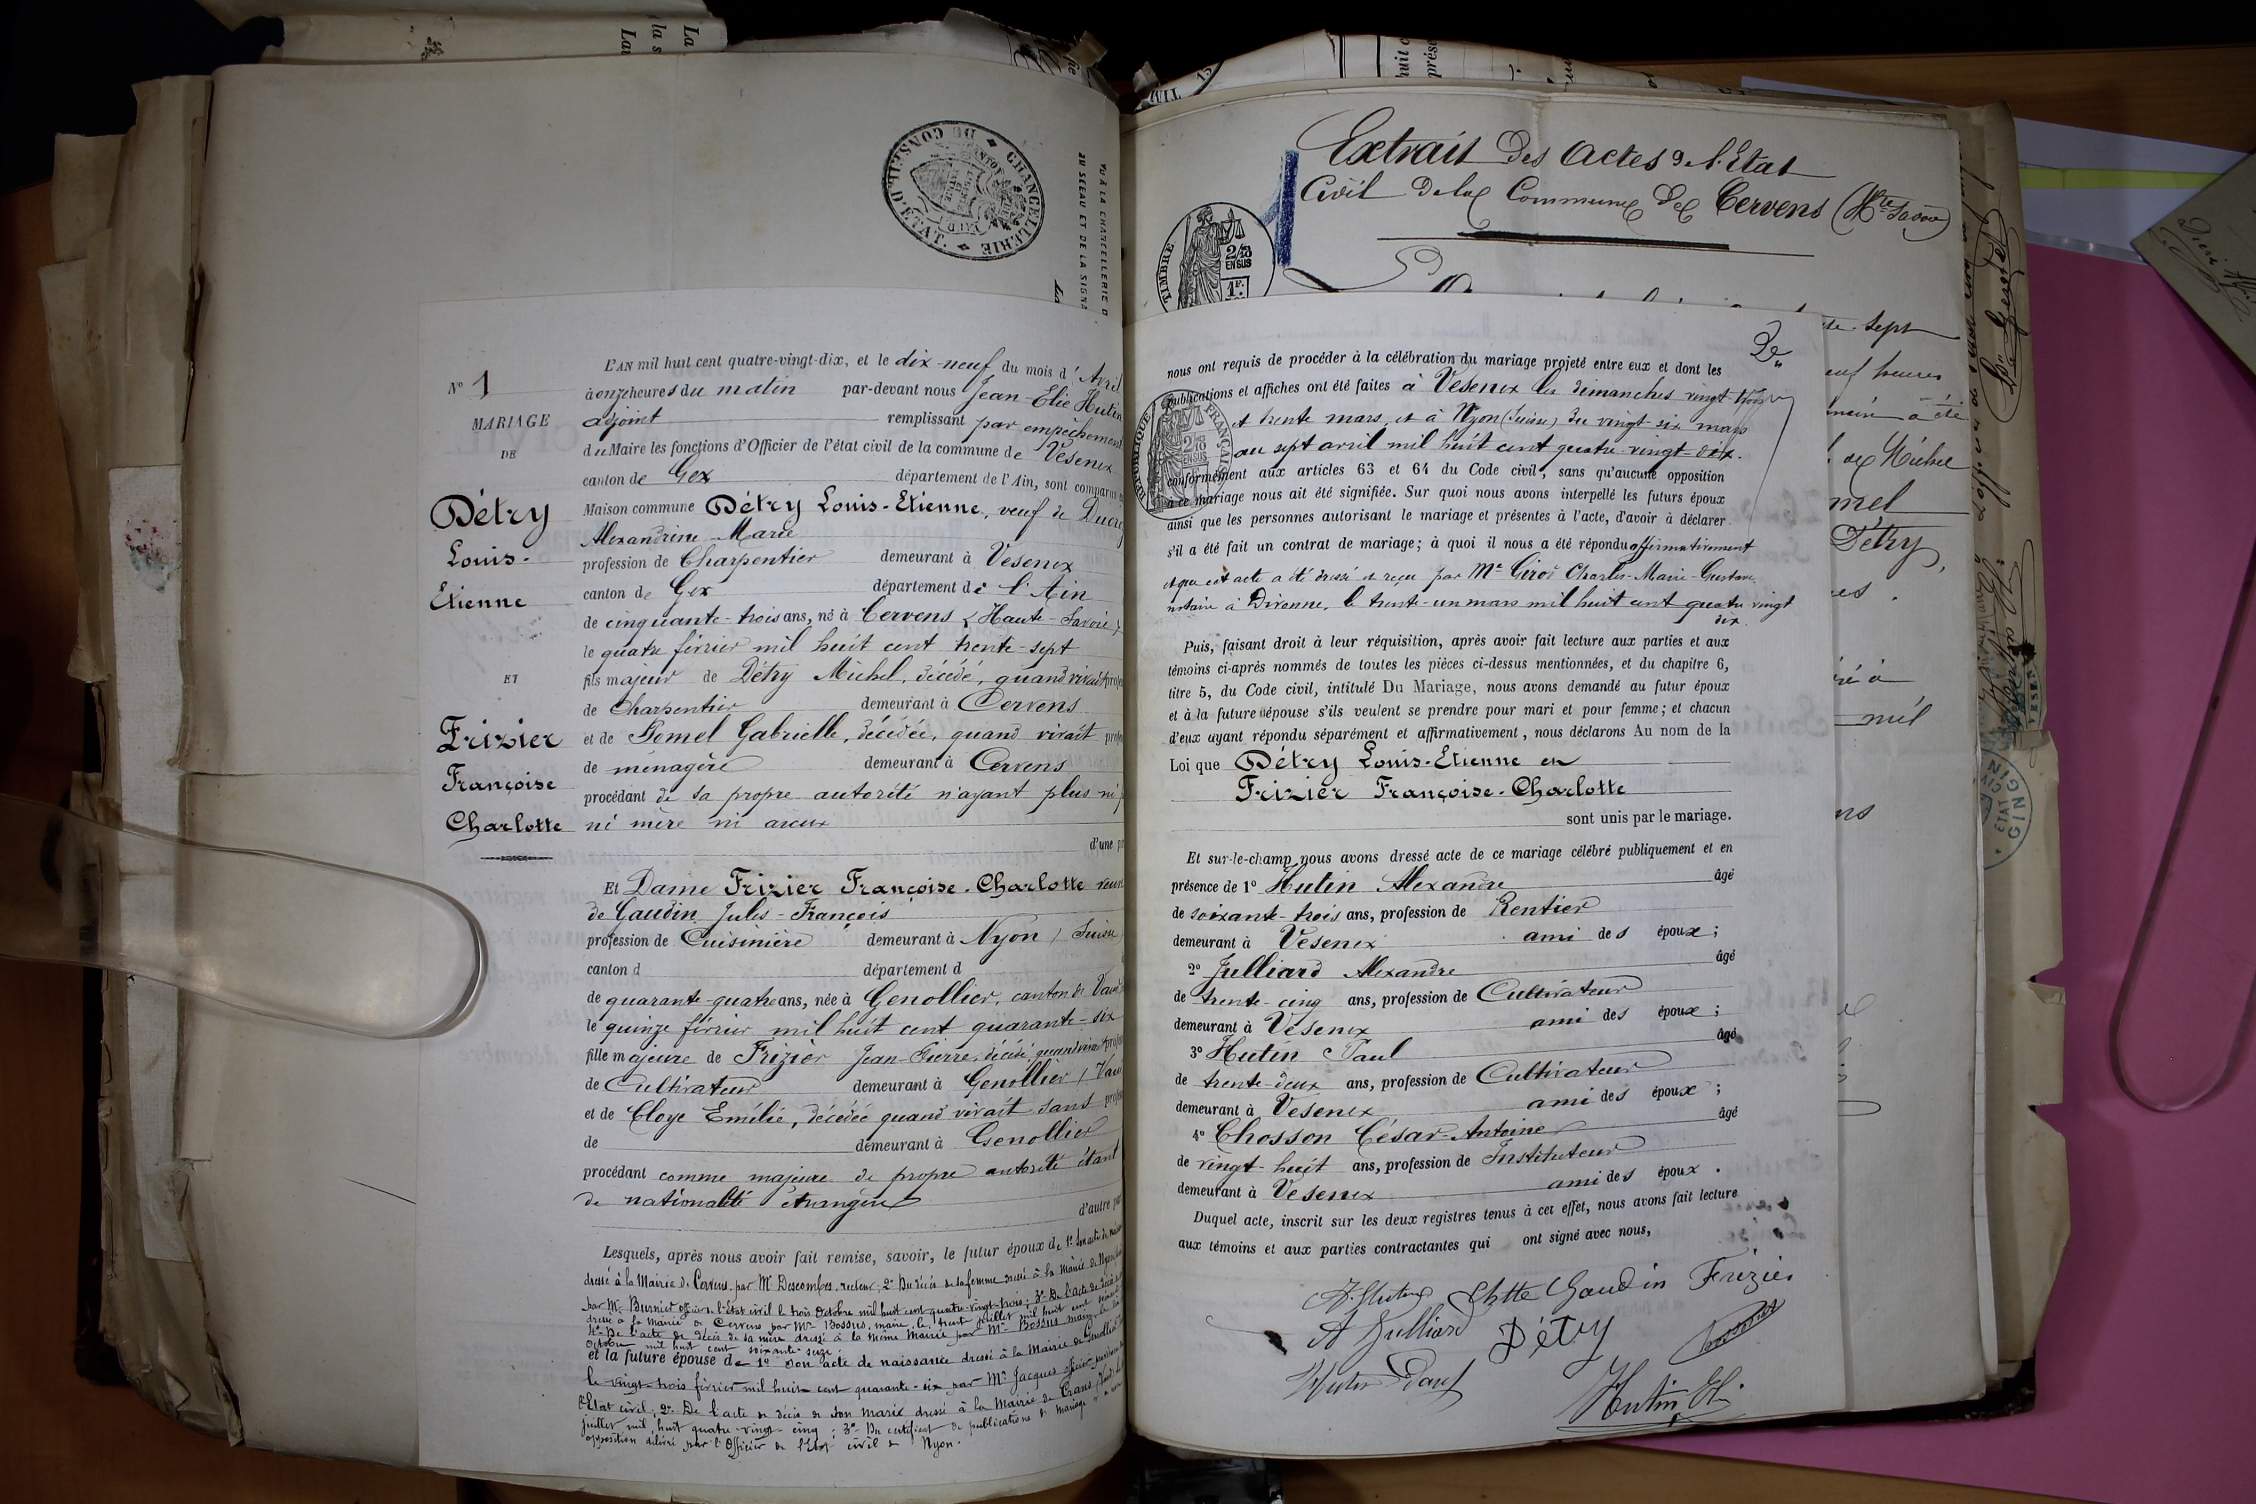 CHANCELLERIE
DU CONSEIL D'ETAT.
VU À LA CHANCELLERIE D
AU SCEAU ET DE LA SIGNA
L'AN mil huit cent quatre-vingt-dix, et le dix-neuf du mois d'Avril
N° 1
à onze heures du matin par-devant nous Jean-Elie Hutin
MARIAGE
adjoint remplissant par empêchement
DE
du Maire les fonctions d'Officier de l'état civil de la commune de Vesenex
canton de Gex département de l'Ain, sont comparus
Détry
Louis-
Etienne
Maison commune Détry Louis-Etienne, veuf de
Alexandrine Marie
profession de Charpentier demeurant à Vesenex
canton de Gex département de l'Ain
de cinquante-trois ans, né à Cervens (Haute-Savoie)
le quatre février mil huit cent trente-sept
ET
fils majeur de Détry Michel, décédé, quand vivait
de Charpentier demeurant à Cervens
Frizier
Françoise
Charlotte
et de Gomel Gabrielle, décédée, quand vivait
de ménagère demeurant à Cervens
procédant de sa propre autorité n'ayant plus ni
ni mère ni aïeux
d'une
Et Dame Frizier Françoise-Charlotte
de Gaudin Jules-François
profession de Cuisinière demeurant à Nyon (Suisse
canton d département d
de quarante-quatre ans, née à Genollier, canton de Vaud
le quinze février mil huit cent quarante-six
fille majeure de Frizier Jean-Pierre, décédé, quand vivait
de Cultivateur demeurant à Genollier (
et de Cloye Emélie, décédée quand vivait sans
de demeurant à Genollier
procédant comme majeure de propre autorité étant
de nationalité étrangère
d'autre
Lesquels, après nous avoir fait remise, savoir, le futur époux de 1° Son acte de
dressé à la Mairie de Cervens par Mr Descombes, recteur; 2° Du décès de sa femme dressé à la Mairie de Nyon
par Mr Burnier officier de l'Etat civil le trois Octobre mil huit cent quatre-vingt-trois; 3° De l'acte de décès
dressé à la Mairie de Cervens par Mr Bossus, maire, le trent juillet mil huit cent
4° De l'acte de décès de sa mère dressé à la même Mairie par Mr Bossus maire
Octobre mil huit cent soixante-seize;
et la future épouse de 1° Son acte de naissance dressé à la Mairie de Genollier
le vingt-trois février mil huit cent quarante-six par Mr Jacques officier
l'Etat civil; 2° De l'acte de décès de son mari dressé à la Mairie de Crans (Vaud)
juillet mil huit quatre vingt cinq; 3° Du certificat de publications de mariage
opposition délivré par l'Officier de l'Etat civil de Nyon.
Extrait Des Actes de l'Etat
Civil De la Commune De Cervens (Hte Savoie)
TIMBRE
2/10
EN SUS
1F.
nous ont requis de procéder à la célébration du mariage projeté entre eux et dont les
publications et affiches ont été faites à Vesenex les dimanches vingt trois
et trente mars, et à Nyon (Suisse) du vingt-six mars
au sept avril mil huit cent quatre-vingt-dix.
conformément aux articles 63 et 64 du Code civil, sans qu'aucune opposition
à ce mariage nous ait été signifiée. Sur quoi nous avons interpellé les futurs époux
ainsi que les personnes autorisant le mariage et présentes à l'acte, d'avoir à déclarer
s'il a été fait un contrat de mariage; à quoi il nous a été répondu affirmativement
et que cet acte a été dressé et reçu par Me Girod Charles-Marie-Gustave
notaire à Divonne, le trente-un mars mil huit cent quatre vingt
dix.
Puis, faisant droit à leur réquisition, après avoir fait lecture aux parties et aux
témoins ci-après nommés de toutes les pièces ci-dessus mentionnées, et du chapitre 6,
titre 5, du Code civil, intitulé Du Mariage, nous avons demandé au futur époux
et à la future épouse s'ils veulent se prendre pour mari et pour femme; et chacun
d'eux ayant répondu séparément et affirmativement, nous déclarons Au nom de la
Loi que Détry Louis-Etienne et
Frizier Françoise-Charlotte
sont unis par le mariage.
Et sur-le-champ nous avons dressé acte de ce mariage célébré publiquement et en
présence de 1° Hutin Alexandre âgé
de soixante-trois ans, profession de Rentier
demeurant à Vesenex ami des époux;
2° Julliard Alexandre âgé
de trente-cinq ans, profession de Cultivateur
demeurant à Vesenex ami des époux;
3° Hutin Paul âgé
de trente-deux ans, profession de Cultivateur
demeurant à Vesenex ami des époux;
4° Chosson César-Antoine âgé
de vingt-huit ans, profession de Instituteur
demeurant à Vesenex ami des époux.
Duquel acte, inscrit sur les deux registres tenus à cet effet, nous avons fait lecture
aux témoins et aux parties contractantes qui ont signé avec nous,
A. Hutin Chtte Gaudin Frizier
A Julliard Détry
Hutin Paul
Hutin Eli
te-sept
neuf heures
a été
de Michel
mel
Détry,
mil